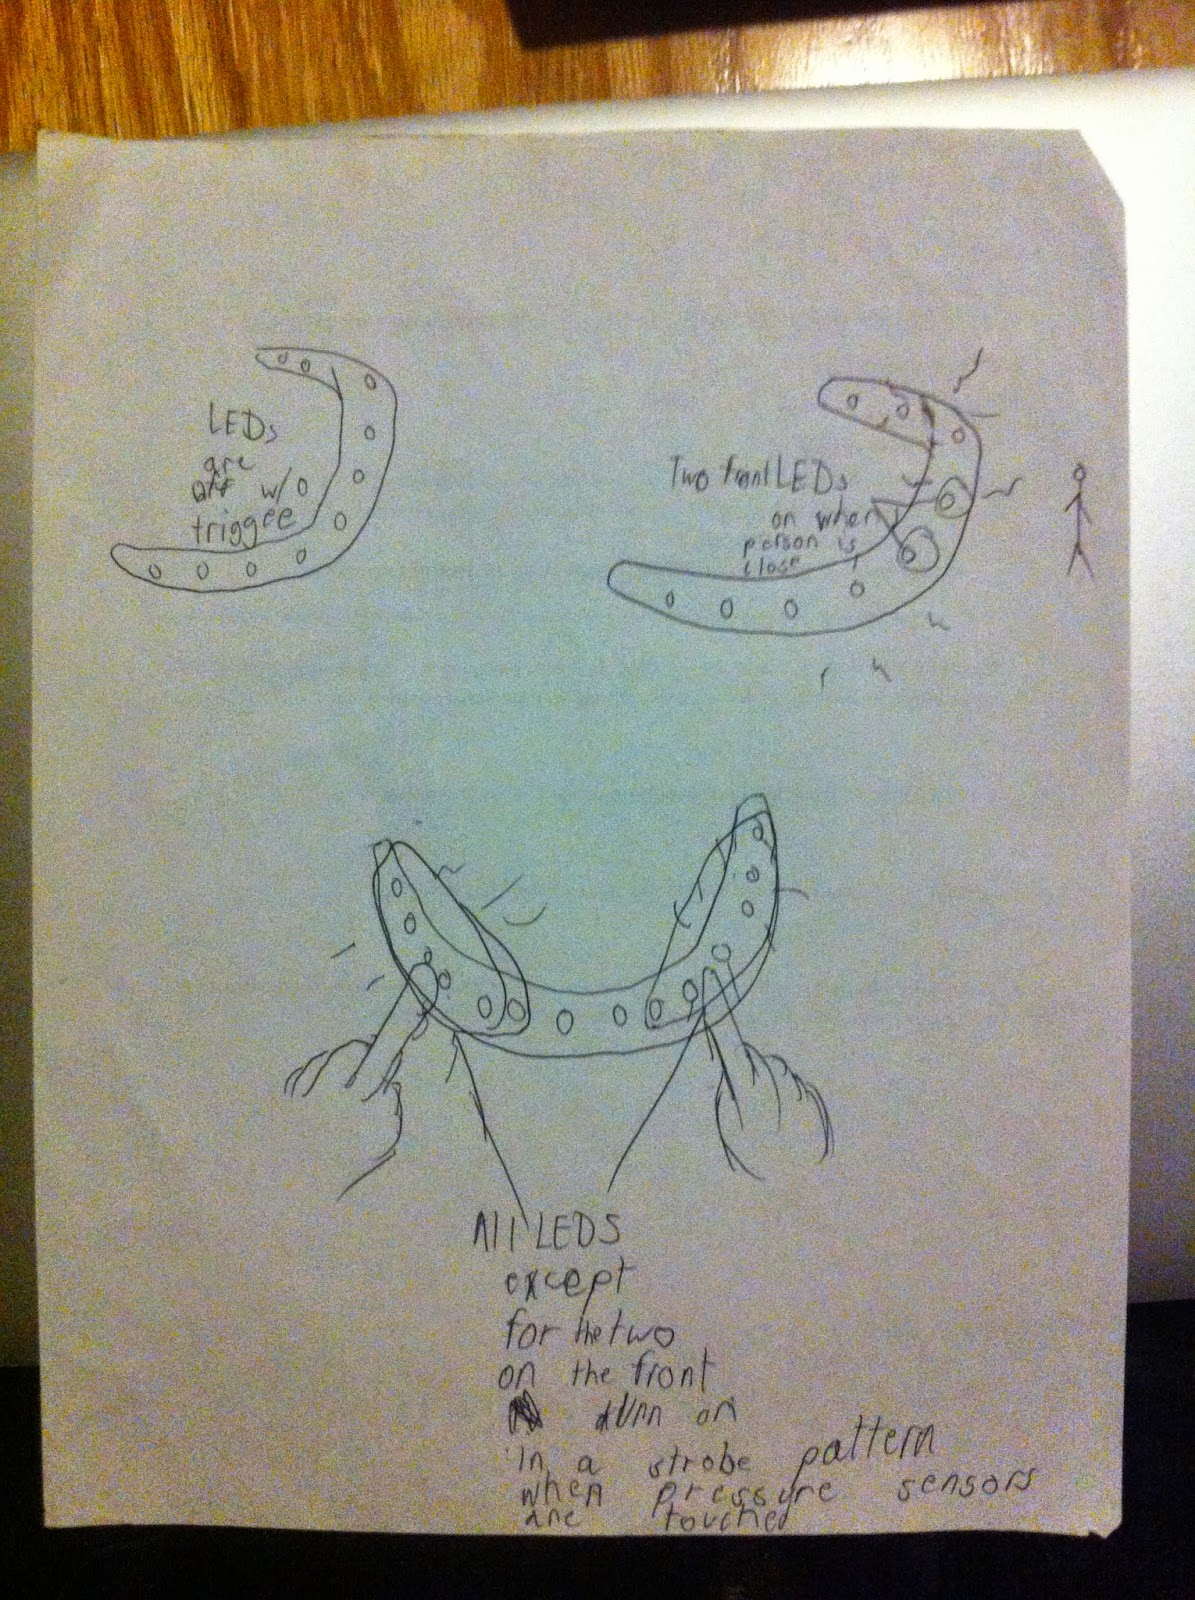 LEDs
are
off w/o
triggee
Two front LEDs
on when
person is
close
All LEDS
except
for the two
on the front
turn on
in a strobe pattern
when pressure sensors
are touched